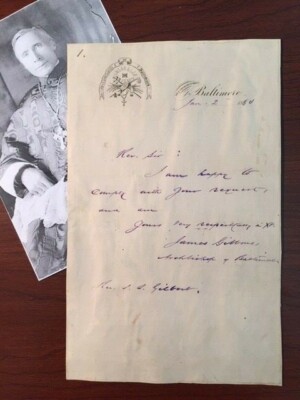 1.
Baltimore
Jan. 2 1884
Rev. Sir:
I am happy to
comply with your request,
and am
Yours very respectfully in Xt.
James Gibbons,
Archbishop of Baltimore.
Rev. S. S. Gilbert.